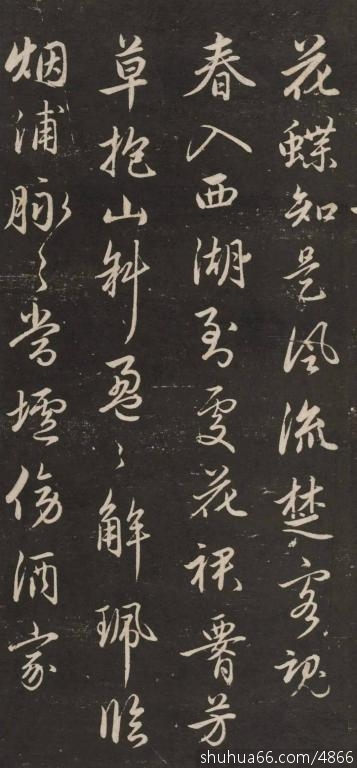 花蝶知是風流楚客魂
春入西湖到處花裙腰芳
草抱山斜盈々解珮臨
烟浦脉々當壚傍酒家
shuhua66.com/4866